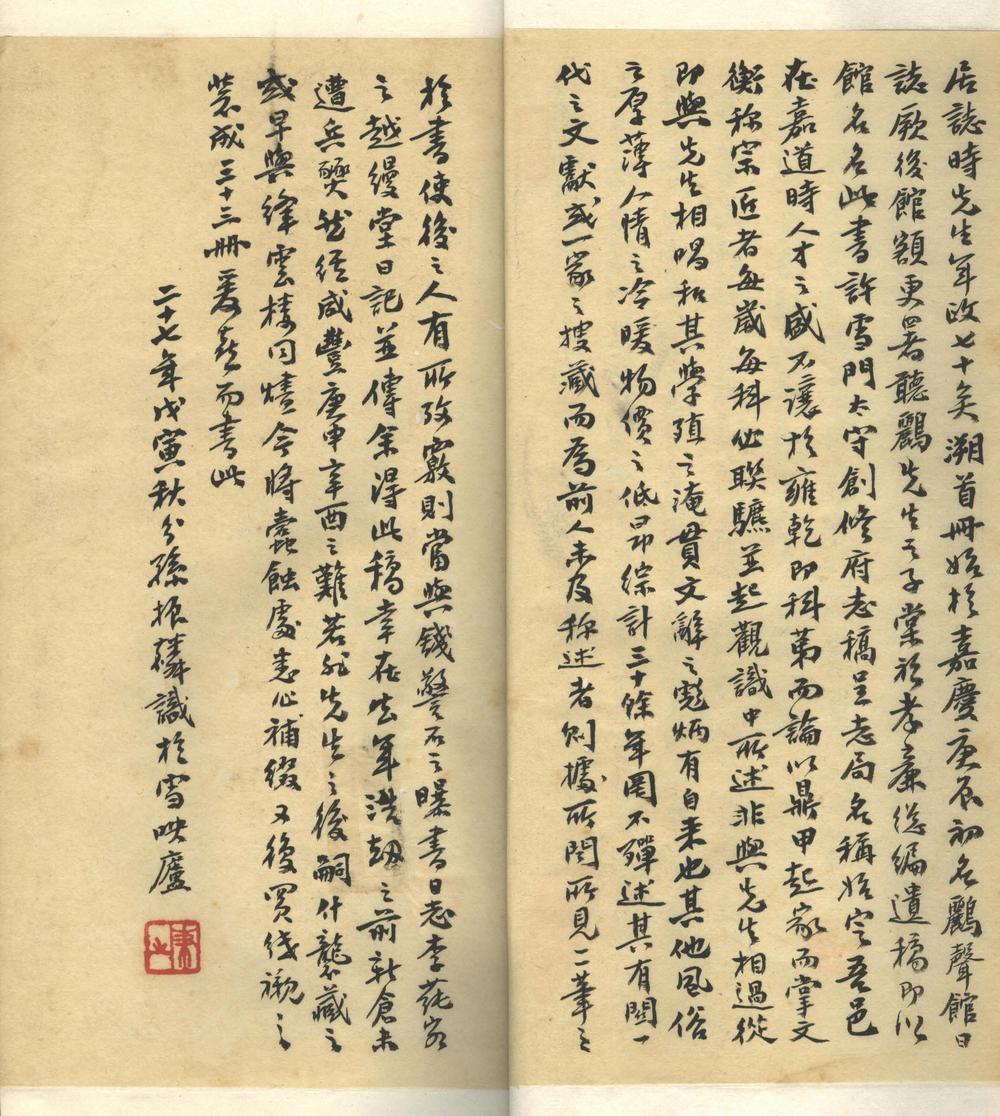 居誌時先生年政七十矣溯首冊始於嘉慶庚辰初名鸝聲館日
誌厥後館額更署聽鸝先生之子棠於孝廉總編遺稿即以
館名名此書許雪門太守創修府志稿呈志局名稱始定吾邑
在嘉道時人才之盛不讓於雍乾即科第而論以鼎甲起家而掌文
衡称宗匠者每歲每科必聯驪並起觀識中所述非與先生相過從
即與先生相唱和其學殖之淹貫文辭之彪炳有自来也其他風俗
之厚薄人情之冷暖物價之低昂綜計三十餘年罔不殫述其有関一
代之文獻或一家之搜藏而為前人未及称述者則據所聞所見一一筆之
於書使後之人有所攷覈則當與錢警石之曝書日志李蒓客
之越縵堂日記並傳余得此稿幸在去年浩劫之前新倉未
遭兵燹然經咸豐庚申辛酉之難若非先生之後嗣什襲藏之
或早與絳雲樓同燼今將蠹蝕處悉心補綴又復買綫襯之
裝成三十三冊爰喜而書此
二十七年戊寅秋分孫振麟識於雪映廬